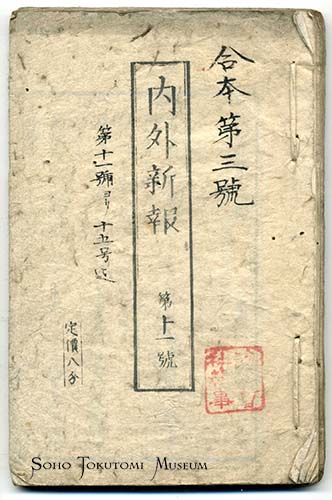 合本第三號
内外新報
第十一號
第十一號ヨリ十五号迄
定價八匁
SOHO TOKUTOMI MUSEUM